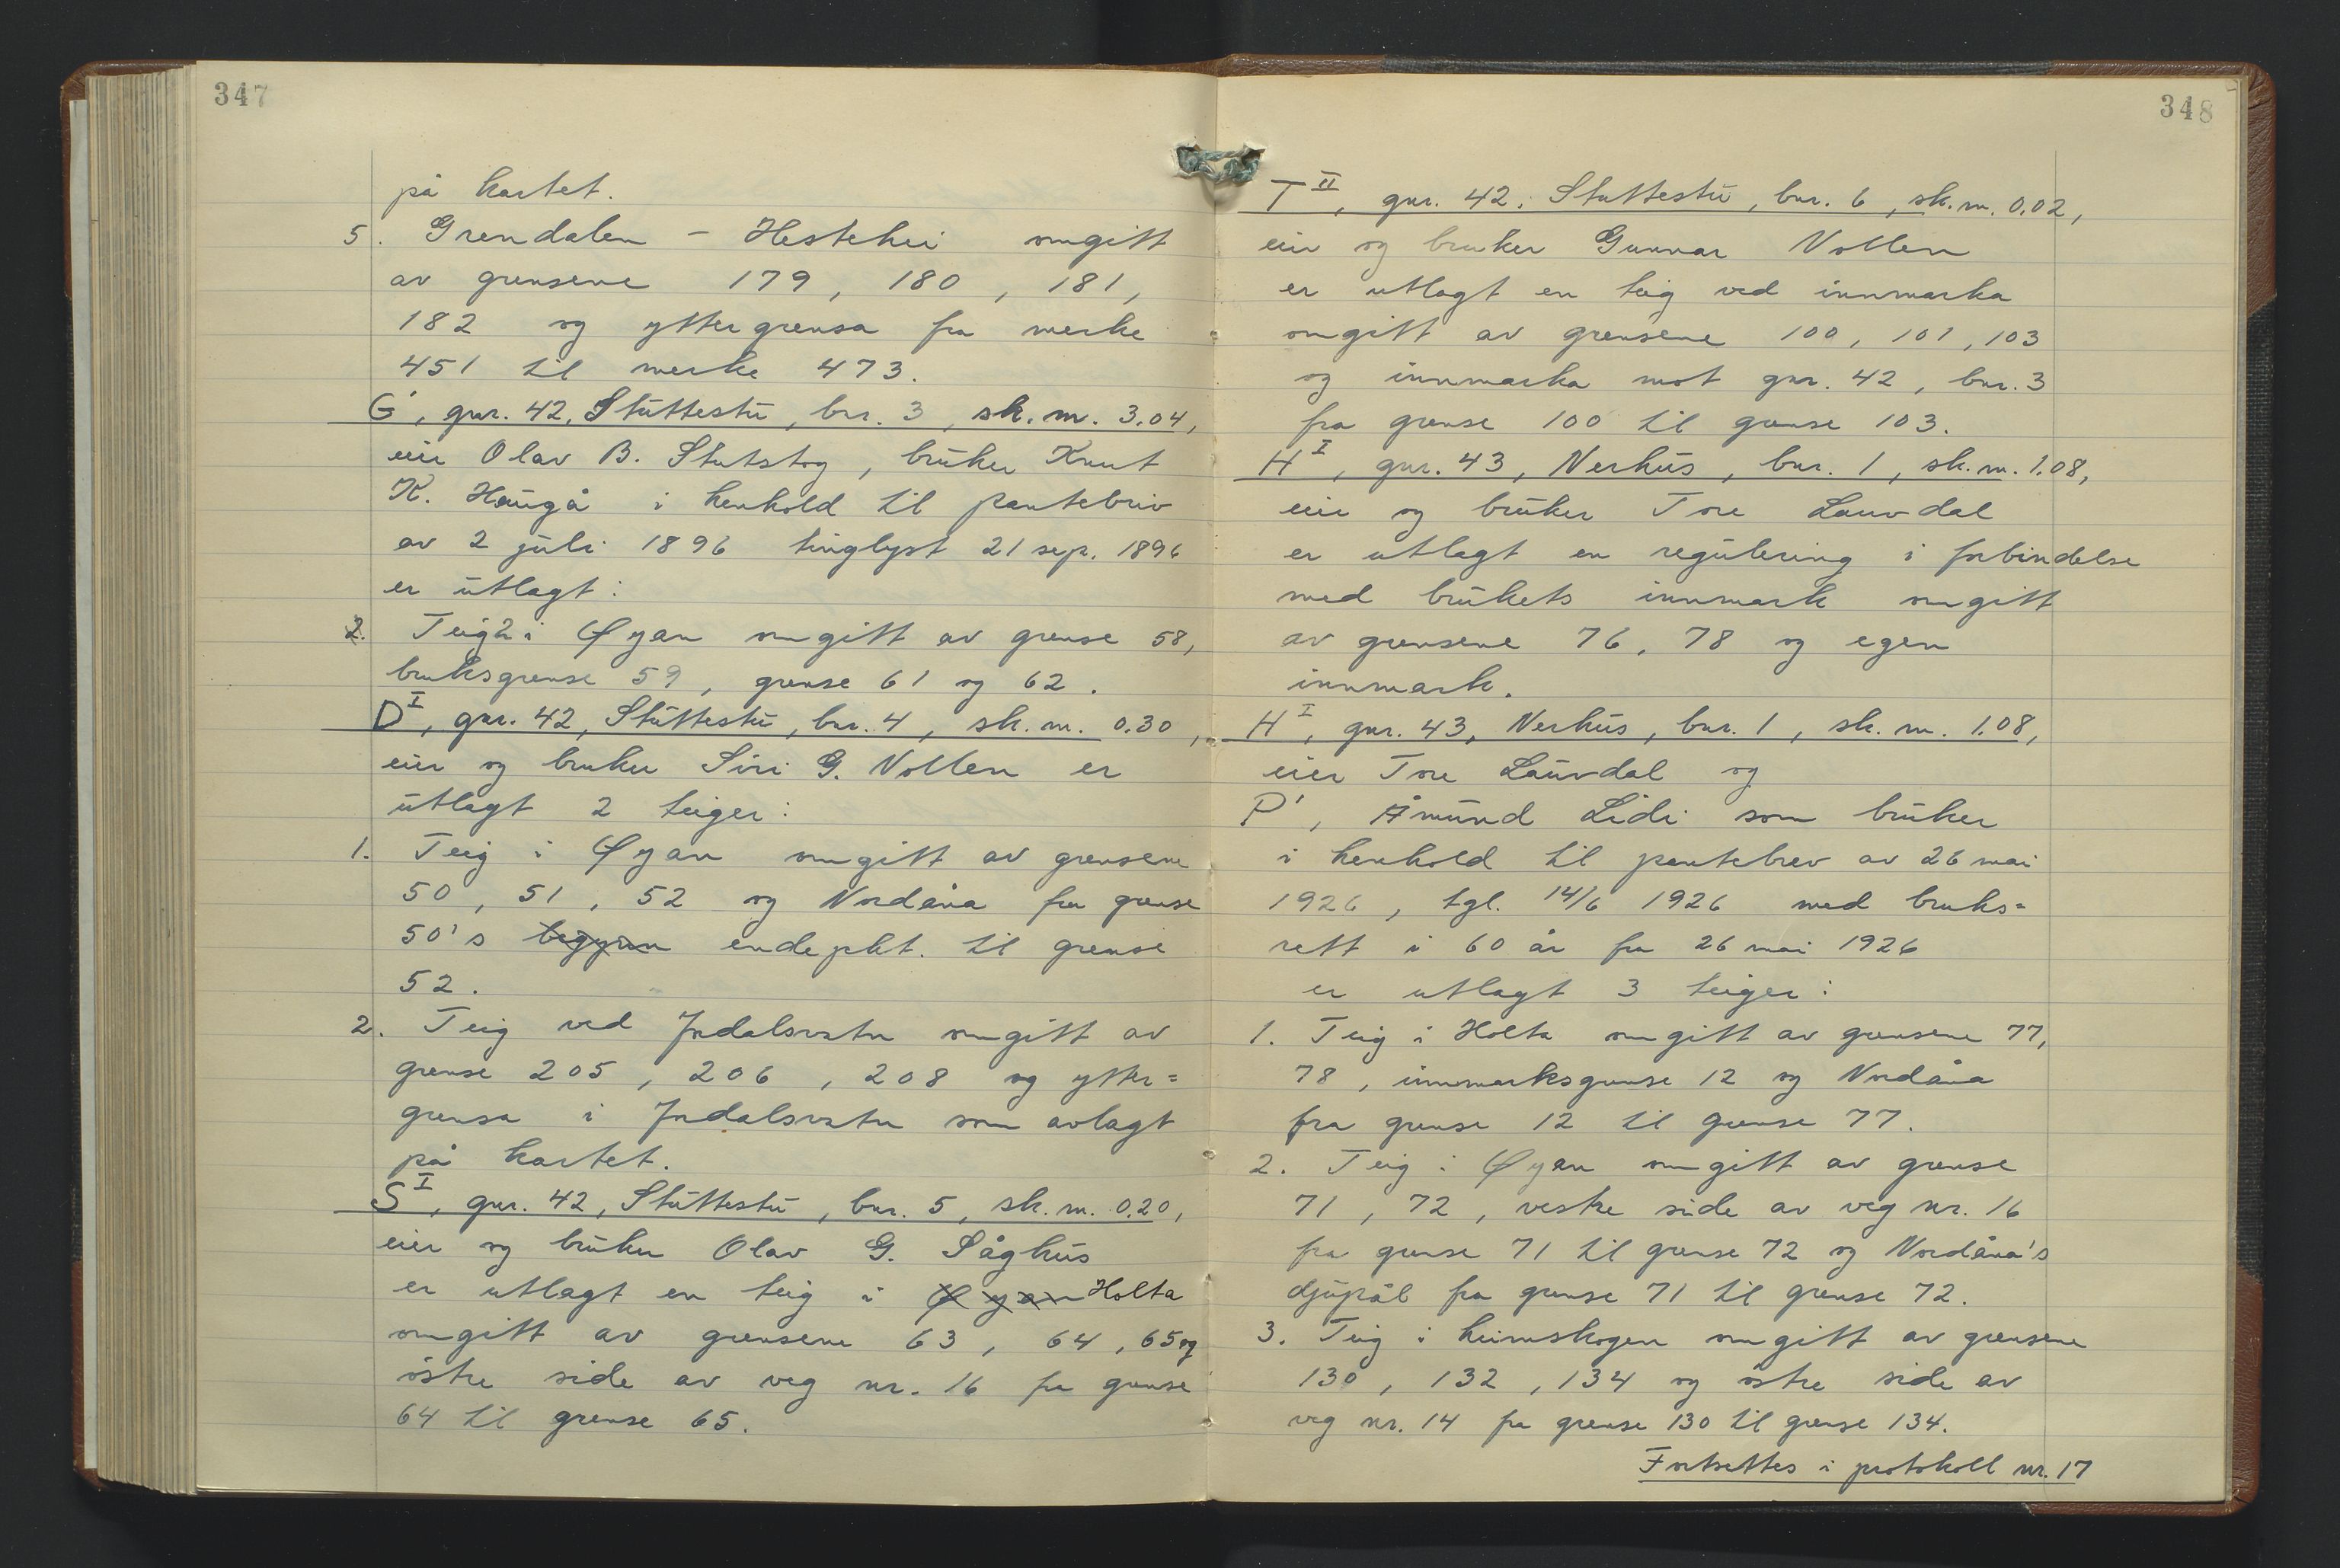 347
på kartet.
5. Grendalen - Hestehei omgitt
av grensene 179, 180, 181,
182 og yttergrensa fra merke
451 til merke 473.
G', gnr. 42, Stuttestu, bnr. 3, sk. m. 3.04,
eier Olav B. Stutstog, bruker Knut
K. Haugå i henhold til pantebriv
av 2 juli 1896 tinglyst 21 sep. 1896
er utlagt:
2. Teig 2 i Øyan omgitt av grense 58,
bruksgrense 59, grense 61 og 62.
D I, gnr. 42, Stuttestu, bnr. 4, sk. m. 0.30,
eier og bruker Siri G. Vollen er
utlagt 2 teiger:
1. Teig i Øyan omgitt av grensene
50, 51, 52 og Nordåna fra grense
50's begynn endepkt. til grense
52.
2. Teig ved Jndalsvatn omgitt av
grense 205, 206, 208 og ytter=
grensa i Jndalsvatn som avlagt
på kartet.
S I, gnr. 42, Stuttestu, bnr. 5, sk. m. 0.20,
eier og bruker Olav G. Såghus
er utlagt en teig i Øyan Holta
omgitt av grensene 63, 64, 65 og
östre side av veg nr. 16 fra grense
64 til grense 65.
348
T II, gnr. 42, Stuttestu, bnr. 6, sk. m. 0.02,
eier og bruker Gunnar Vollen
er utlagt en teig ved innmarka
omgitt av grensene 100, 101, 103
og innmarka mot gnr. 42, bnr. 3
fra grense 100 til grense 103.
H I, gnr. 43, Nerhus, bnr. 1, sk. m. 1.08,
eier og bruker Tore Lauvdal
er utlagt en regulering i forbindelse
med brukets innmark omgitt
av grensene 76, 78 og egen
innmark.
H I, gnr. 43, Nerhus, bnr. 1, sk. m. 1.08,
eier Tore Lauvdal og
P', Åmund Lidi som bruker
i henhold til pantebrev av 26 mai
1926, tgl. 14/6 1926 med bruks=
rett i 60 år fra 26 mai 1926
er utlagt 3 teiger:
1. Teig i Holta omgitt av grensene 77,
78, innmarksgrense 12 og Nordåna
fra grense 12 til grense 77.
2. Teig i Øyan omgitt av grense
71, 72, vestre side av veg nr. 16
fra grense 71 til grense 72 og Nordåna's
djupål fra grense 71 til grense 72.
3. Teig i heimskogen omgitt av grensene
130, 132, 134 og östre side av
veg nr. 14 fra grense 130 til grense 134.
Fortsettes i protokoll nr. 17